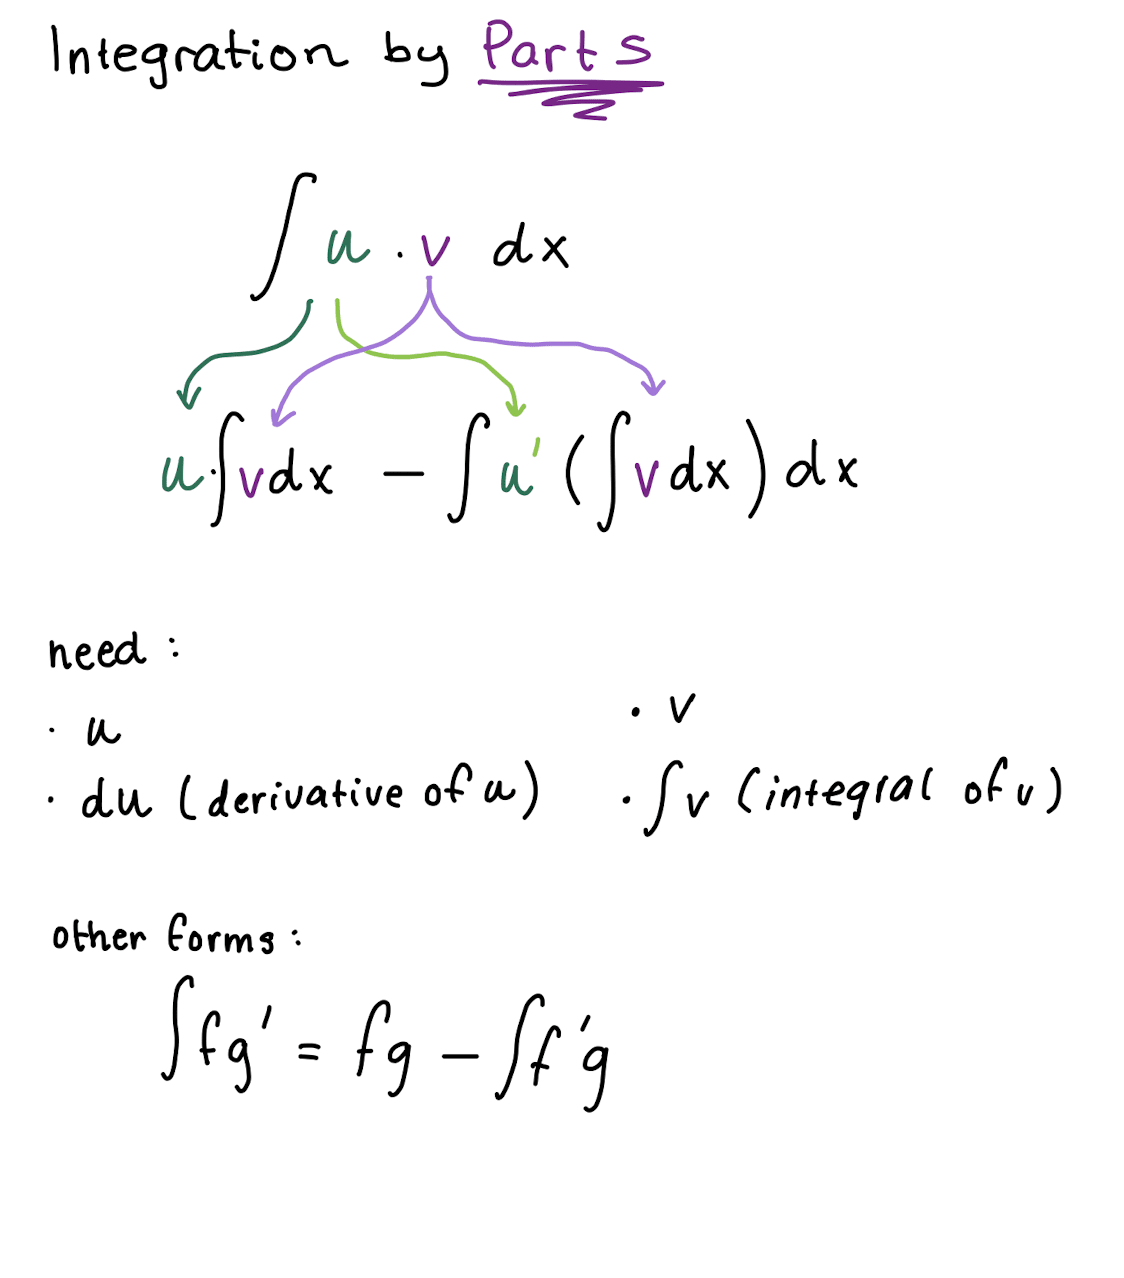 Integration by Parts
∫ u · v dx
u·∫vdx − ∫u'(∫vdx)dx
need :
· u
· v
· du (derivative of u)
· ∫v (integral of v)
other forms :
∫fg' = fg − ∫f'g